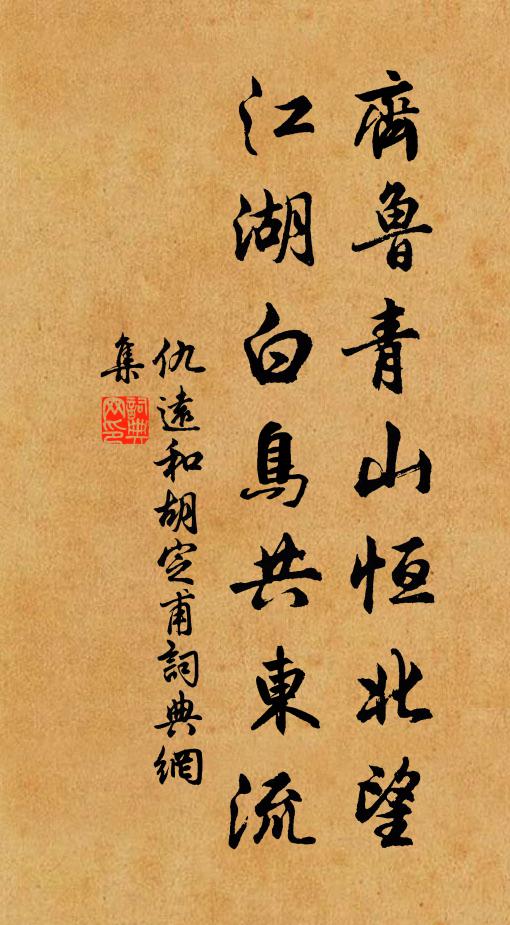 齊魯青山恒北望
江湖白鳥共東流
仇遠和胡定甫詞典網
集
詞典
网印